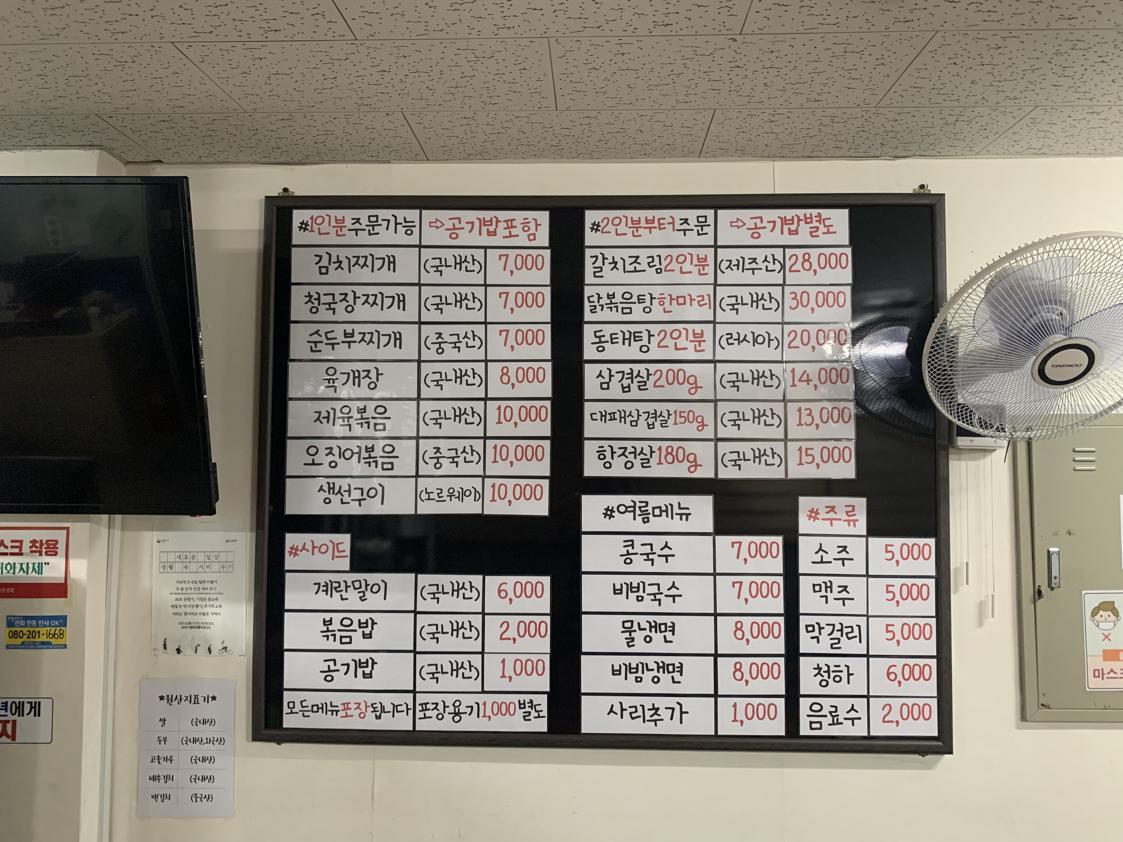 #1인분주문가능 ⇨공기밥포함
김치찌개 (국내산) 7,000
청국장찌개 (국내산) 7,000
순두부찌개 (중국산) 7,000
육개장 (국내산) 8,000
제육볶음 (국내산) 10,000
오징어볶음 (중국산) 10,000
생선구이 (노르웨이) 10,000
#사이드
계란말이 (국내산) 6,000
볶음밥 (국내산) 2,000
공기밥 (국내산) 1,000
모든메뉴포장됩니다 포장용기1,000별도
#2인분부터주문 ⇨공기밥별도
갈치조림2인분 (제주산) 28,000
닭볶음탕한마리 (국내산) 30,000
동태탕2인분 (러시아) 20,000
삼겹살200g (국내산) 14,000
대패삼겹살150g (국내산) 13,000
항정살180g (국내산) 15,000
#여름메뉴
콩국수 7,000
비빔국수 7,000
물냉면 8,000
비빔냉면 8,000
사리추가 1,000
#주류
소주 5,000
맥주 5,000
막걸리 5,000
청하 6,000
음료수 2,000
DAEWOO
스크 착용
화자제"
080-201-1668
에게
지
★원산지표기★
쌀 (국내산)
두부 (국내산,외국산)
고춧가루 (국내산)
배추김치 (국내산)
(중국산)
마스